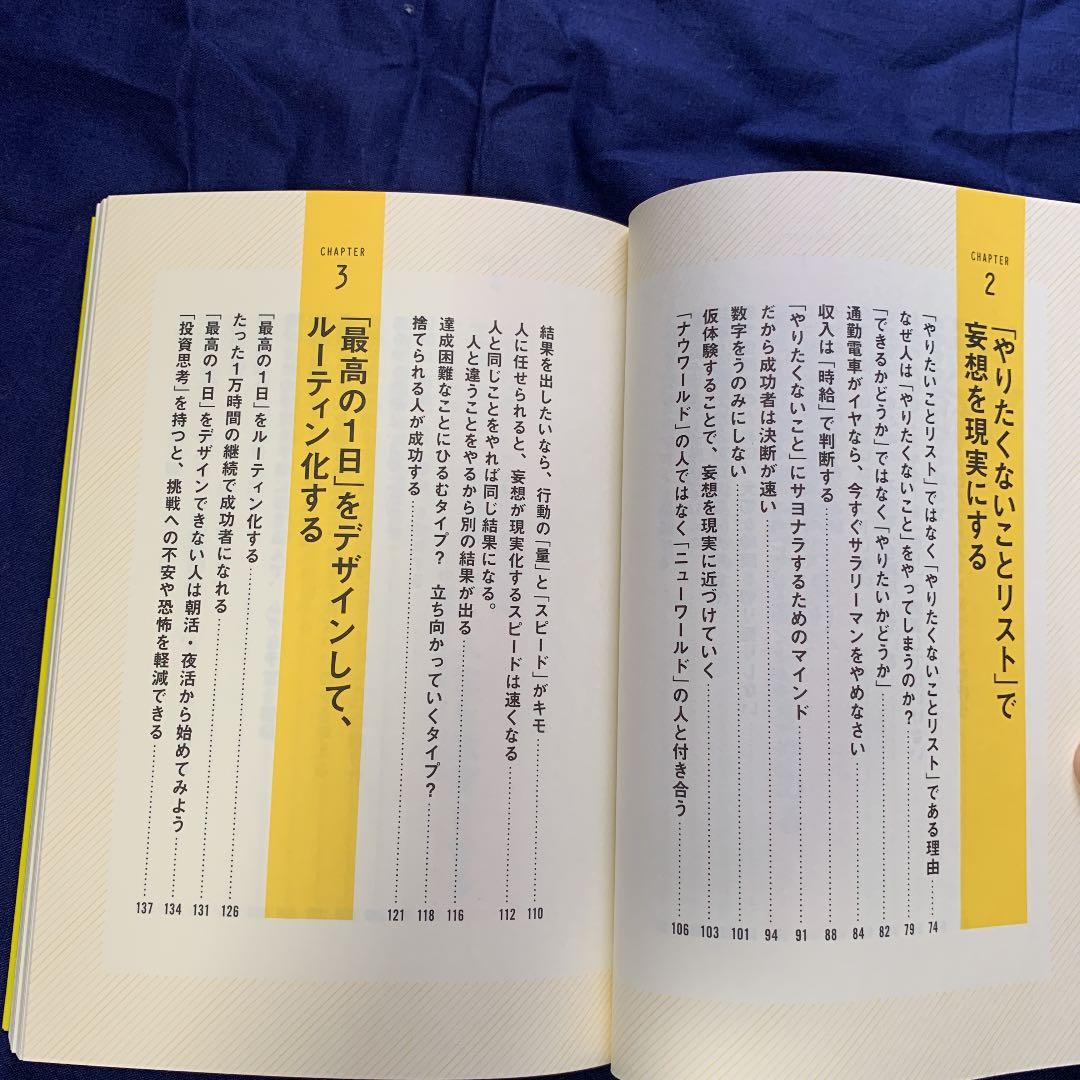 CHAPTER
2
「やりたくないことリスト」で
妄想を現実にする
「やりたいことリスト」ではなく「やりたくないことリスト」である理由 74
なぜ人は「やりたくないこと」をやってしまうのか？ 79
「できるかどうか」ではなく「やりたいかどうか」 82
通勤電車がイヤなら、今すぐサラリーマンをやめなさい 84
収入は「時給」で判断する 88
「やりたくないこと」にサヨナラするためのマインド 91
だから成功者は決断が速い 94
数字をうのみにしない 101
仮体験することで、妄想を現実に近づけていく 103
「ナウワールド」の人ではなく「ニューワールド」の人と付き合う 106
結果を出したいなら、行動の「量」と「スピード」がキモ 110
人に任せられると、妄想が現実化するスピードは速くなる 112
人と同じことをやれば同じ結果になる。
人と違うことをやるから別の結果が出る 116
達成困難なことにひるむタイプ？　立ち向かっていくタイプ？ 118
捨てられる人が成功する 121
CHAPTER
3
「最高の1日」をデザインして、
ルーティン化する
「最高の1日」をルーティン化する 126
たった1万時間の継続で成功者になれる 131
「最高の1日」をデザインできない人は朝活・夜活から始めてみよう 134
「投資思考」を持つと、挑戦への不安や恐怖を軽減できる 137